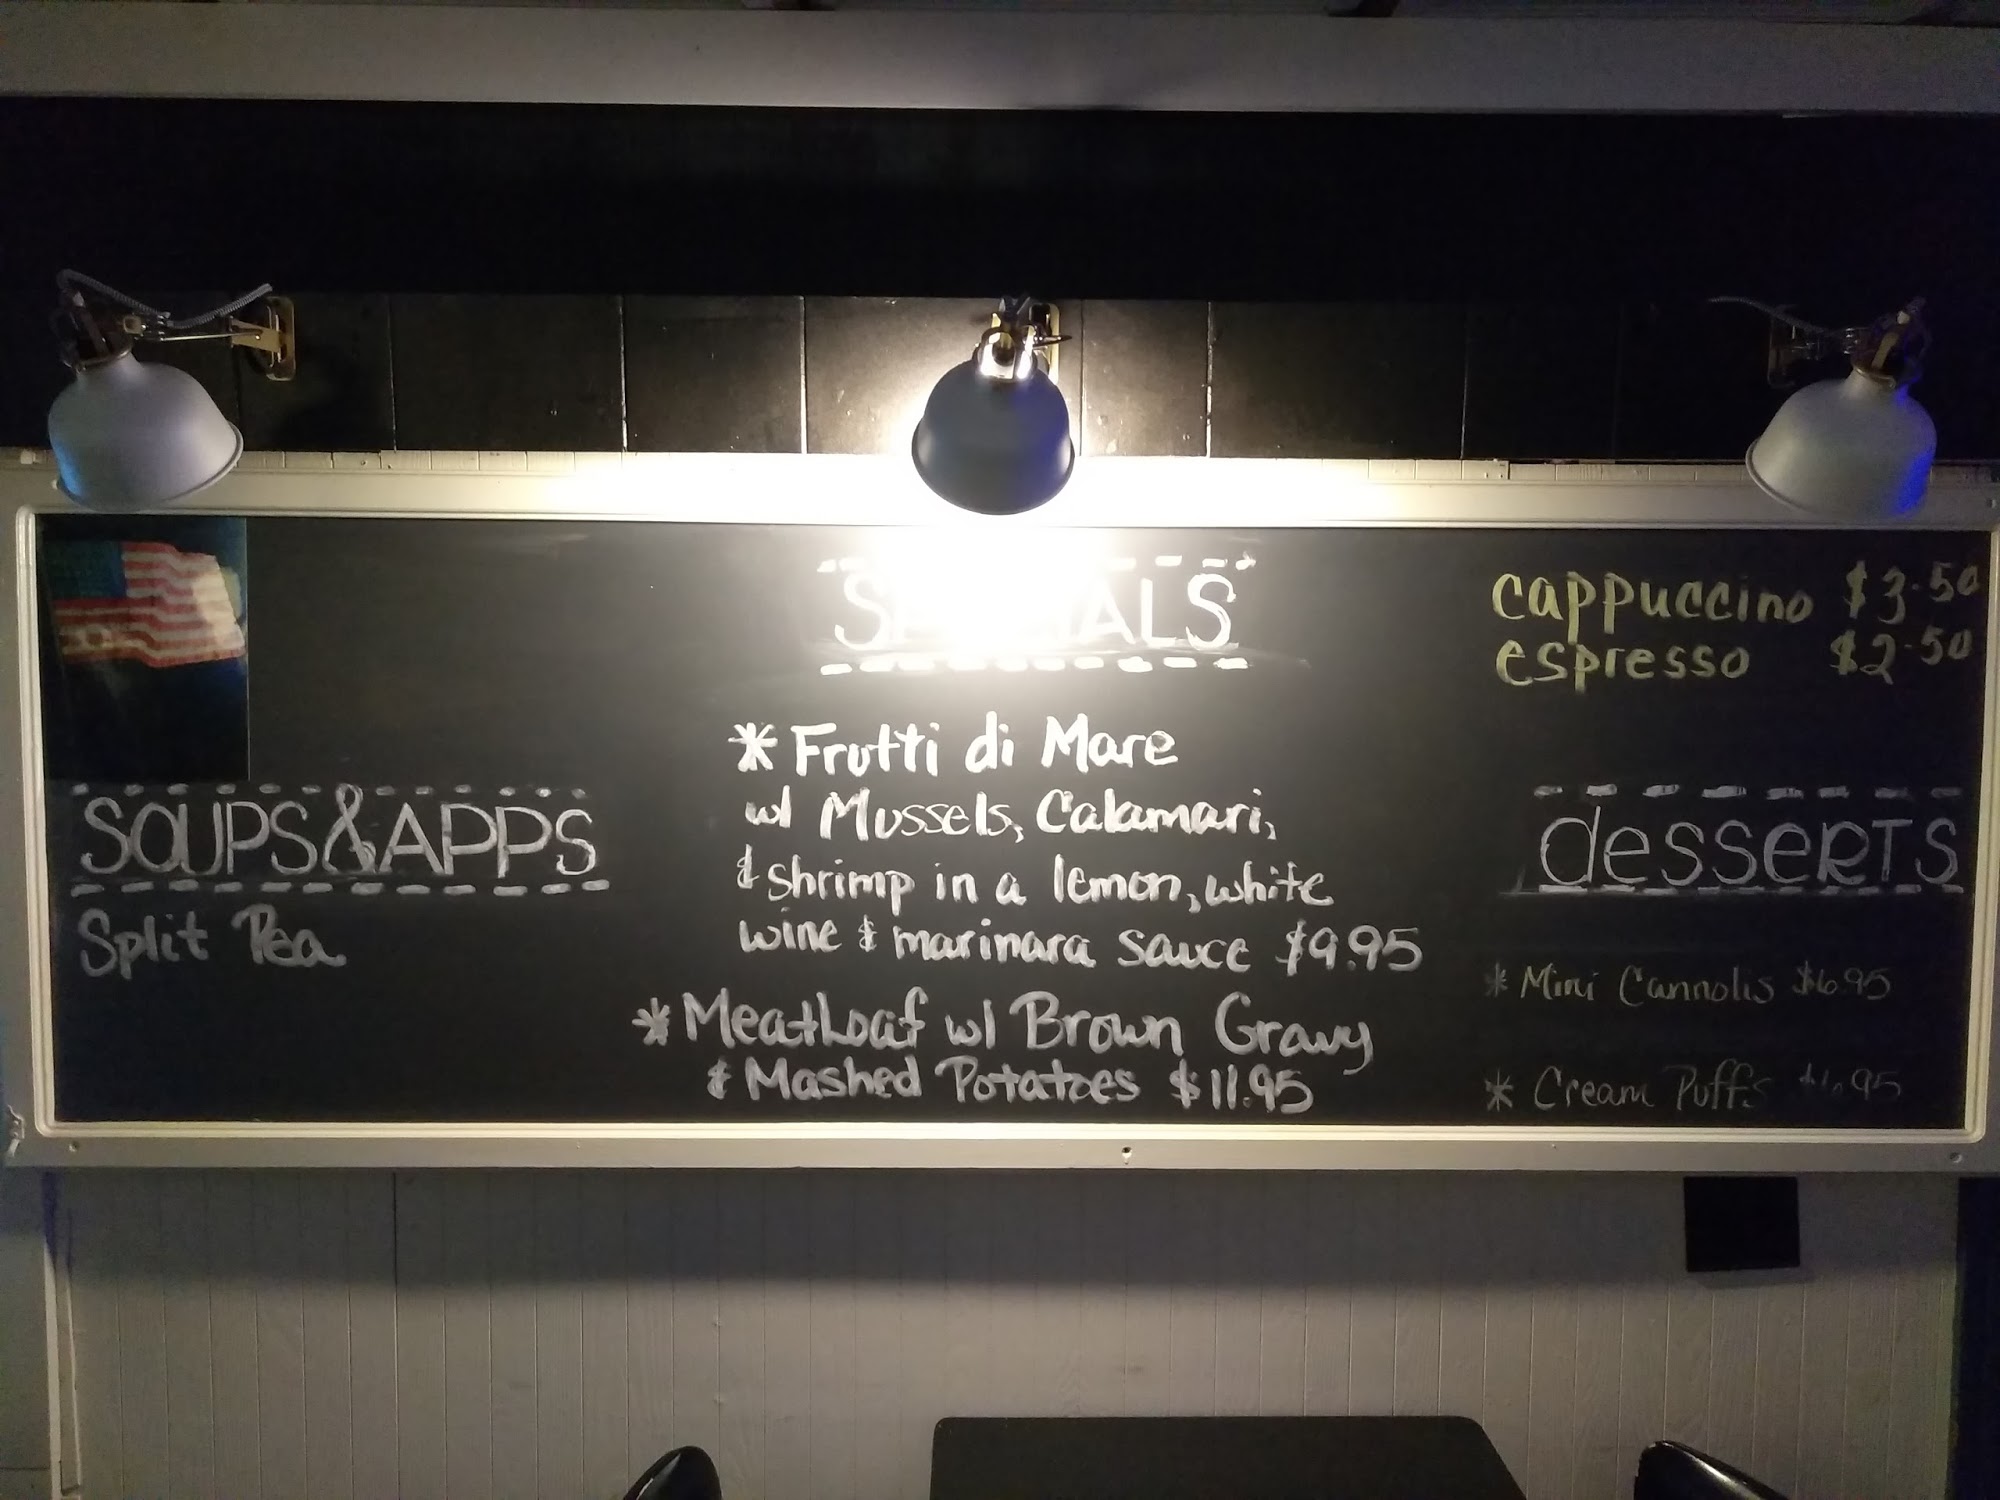 SOUPS & APPS
Split Pea
SPECIALS
* Frutti di Mare
w/ Mussels, Calamari,
& shrimp in a lemon, white
wine & marinara sauce $9.95
* Meatloaf w/ Brown Gravy
& Mashed Potatoes $11.95
cappuccino $3.50
espresso $2.50
desserts
* Mini Cannolis $6.95
* Cream Puffs